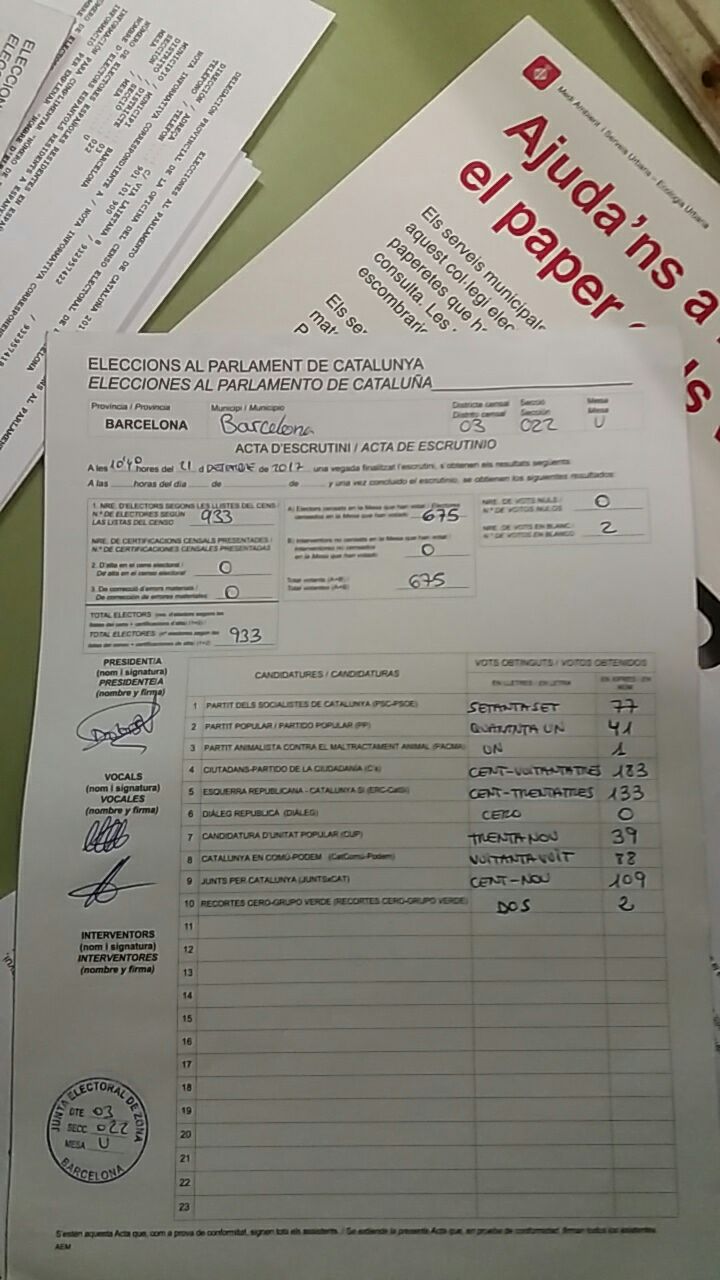 Medi Ambient i Serveis Urbans – Ecologia Urbana
Ajuda'ns a
el paper
Els serveis municipals
aquest col·legi elec
paperetes que h
consulta. Les
escombrari
Els se
mat
ELECCIONS AL PARLAMENT DE CATALUNYA
ELECCIONES AL PARLAMENTO DE CATALUÑA
Província / Provincia Municipi / Municipio Districte censal Secció Mesa
Distrito censal Sección Mesa
BARCELONA Barcelona 03 022 U
ACTA D'ESCRUTINI / ACTA DE ESCRUTINIO
A les 10'40 hores del 21 d DESEMBRE de 2017 una vegada finalitzat l'escrutini, s'obtenen els resultats següents:
A las horas del día de de y una vez concluido el escrutinio, se obtienen los siguientes resultados:
1. NRE. D'ELECTORS SEGONS LES LLISTES DEL CENS
N.º DE ELECTORES SEGÚN
LAS LISTAS DEL CENSO 933
NRE. DE CERTIFICACIONS CENSALS PRESENTADES /
N.º DE CERTIFICACIONES CENSALES PRESENTADAS
2. D'alta en el cens electoral
De alta en el censo electoral 0
3. De correcció d'errors materials /
De corrección de errores materiales 0
TOTAL ELECTORS
TOTAL ELECTORES 933
A) Electors censats en la Mesa que han votat / Electores
censados en la Mesa que han votado 675
B) Interventors no censats en la Mesa que han votat /
Interventores no censados
en la Mesa que han votado 0
Total votants (A+B) /
Total votantes (A+B) 675
NRE. DE VOTS NULS /
N.º DE VOTOS NULOS 0
NRE. DE VOTS EN BLANC /
N.º DE VOTOS EN BLANCO 2
PRESIDENT/A
(nom i signatura)
PRESIDENTE/A
(nombre y firma)
VOCALS
(nom i signatura)
VOCALES
(nombre y firma)
INTERVENTORS
(nom i signatura)
INTERVENTORES
(nombre y firma)
CANDIDATURES / CANDIDATURAS VOTS OBTINGUTS / VOTOS OBTENIDOS
EN LLETRES / EN LETRA EN XIFRES / EN NÚM
1 PARTIT DELS SOCIALISTES DE CATALUNYA (PSC-PSOE) SETANTA SET 77
2 PARTIT POPULAR / PARTIDO POPULAR (PP) QUARANTA UN 41
3 PARTIT ANIMALISTA CONTRA EL MALTRACTAMENT ANIMAL (PACMA) UN 1
4 CIUTADANS-PARTIDO DE LA CIUDADANÍA (C's) CENT-VUITANTATRES 183
5 ESQUERRA REPUBLICANA - CATALUNYA SÍ (ERC-CatSí) CENT-TRENTATRES 133
6 DIÀLEG REPUBLICÀ (DIÀLEG) CERO 0
7 CANDIDATURA D'UNITAT POPULAR (CUP) TRENTA NOU 39
8 CATALUNYA EN COMÚ-PODEM (CatComú-Podem) VUITANTA VUIT 88
9 JUNTS PER CATALUNYA (JUNTSxCAT) CENT-NOU 109
10 RECORTES CERO-GRUPO VERDE (RECORTES CERO-GRUPO VERDE) DOS 2
11
12
13
14
15
16
17
18
19
20
21
22
23
JUNTA ELECTORAL DE ZONA
DTE 03
SECC 022
MESA U
BARCELONA
S'estén aquesta Acta que, com a prova de conformitat, signen tots els assistents. / Se extiende la presente Acta que, en prueba de conformidad, firman todos los asistentes.
AEM